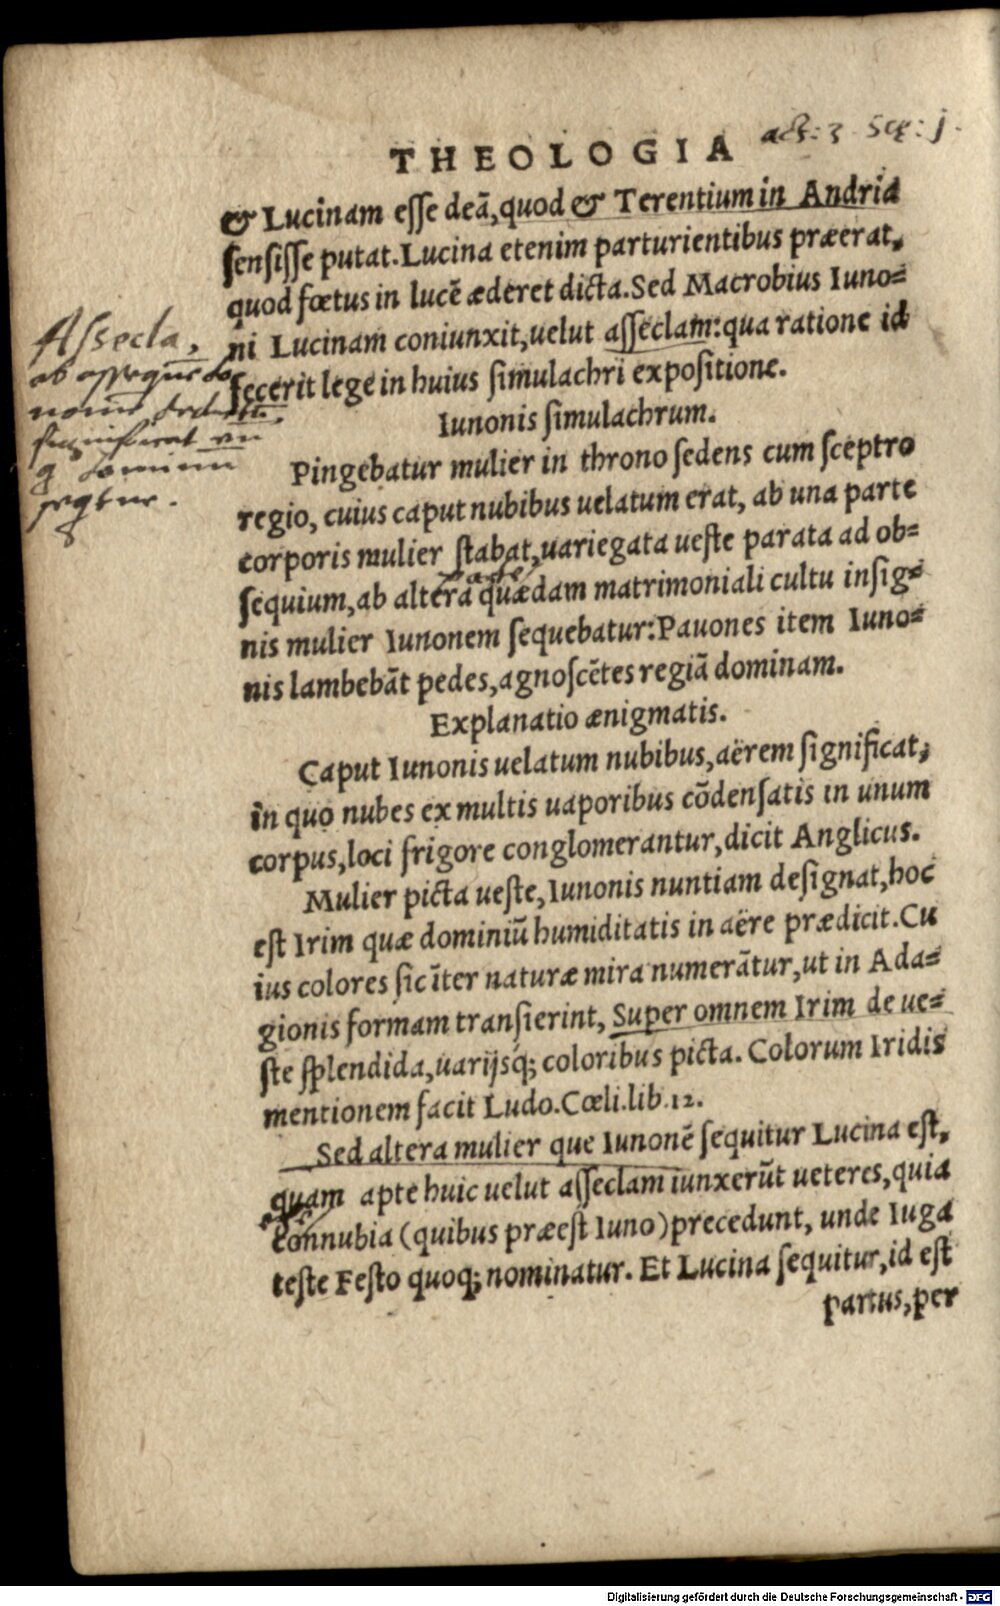 THEOLOGIA
act: 3. Sce: j.
& Lucinam esse deã, quod & Terentium in Andria
sensisse putat. Lucina etenim parturientibus præerat,
quod fœtus in lucẽ æderet dicta. Sed Macrobius Iuno=
ni Lucinam coniunxit, uelut asseclam: qua ratione id
fecerit lege in huius simulachri expositione.
Assecla,
ab
significat
Iunonis simulachrum.
Pingebatur mulier in throno sedens cum sceptro
regio, cuius caput nubibus uelatum erat, ab una parte
corporis mulier stabat, uariegata ueste parata ad ob=
parte
sequium, ab altera quædam matrimoniali cultu insig=
nis mulier Iunonem sequebatur: Pauones item Iuno=
nis lambebãt pedes, agnoscẽtes regiã dominam.
Explanatio ænigmatis.
Caput Iunonis uelatum nubibus, aërem significat,
in quo nubes ex multis uaporibus cõdensatis in unum
corpus, loci frigore conglomerantur, dicit Anglicus.
Mulier picta ueste, Iunonis nuntiam designat, hoc
est Irim quæ dominiũ humiditatis in aëre prædicit. Cu
ius colores sic ĩter naturæ mira numerãtur, ut in Ada=
gionis formam transierint, Super omnem Irim de ue=
ste splendida, uarijsq; coloribus picta. Colorum Iridis
mentionem facit Ludo. Cœli. lib. 12.
Sed altera mulier que Iunonẽ sequitur Lucina est,
quam apte huic uelut asseclam iunxerũt ueteres, quia
connubia (quibus præest Iuno) precedunt, unde Iuga
teste Festo quoq; nominatur. Et Lucina sequitur, id est
partus, per
Digitalisierung gefördert durch die Deutsche Forschungsgemeinschaft - DFG